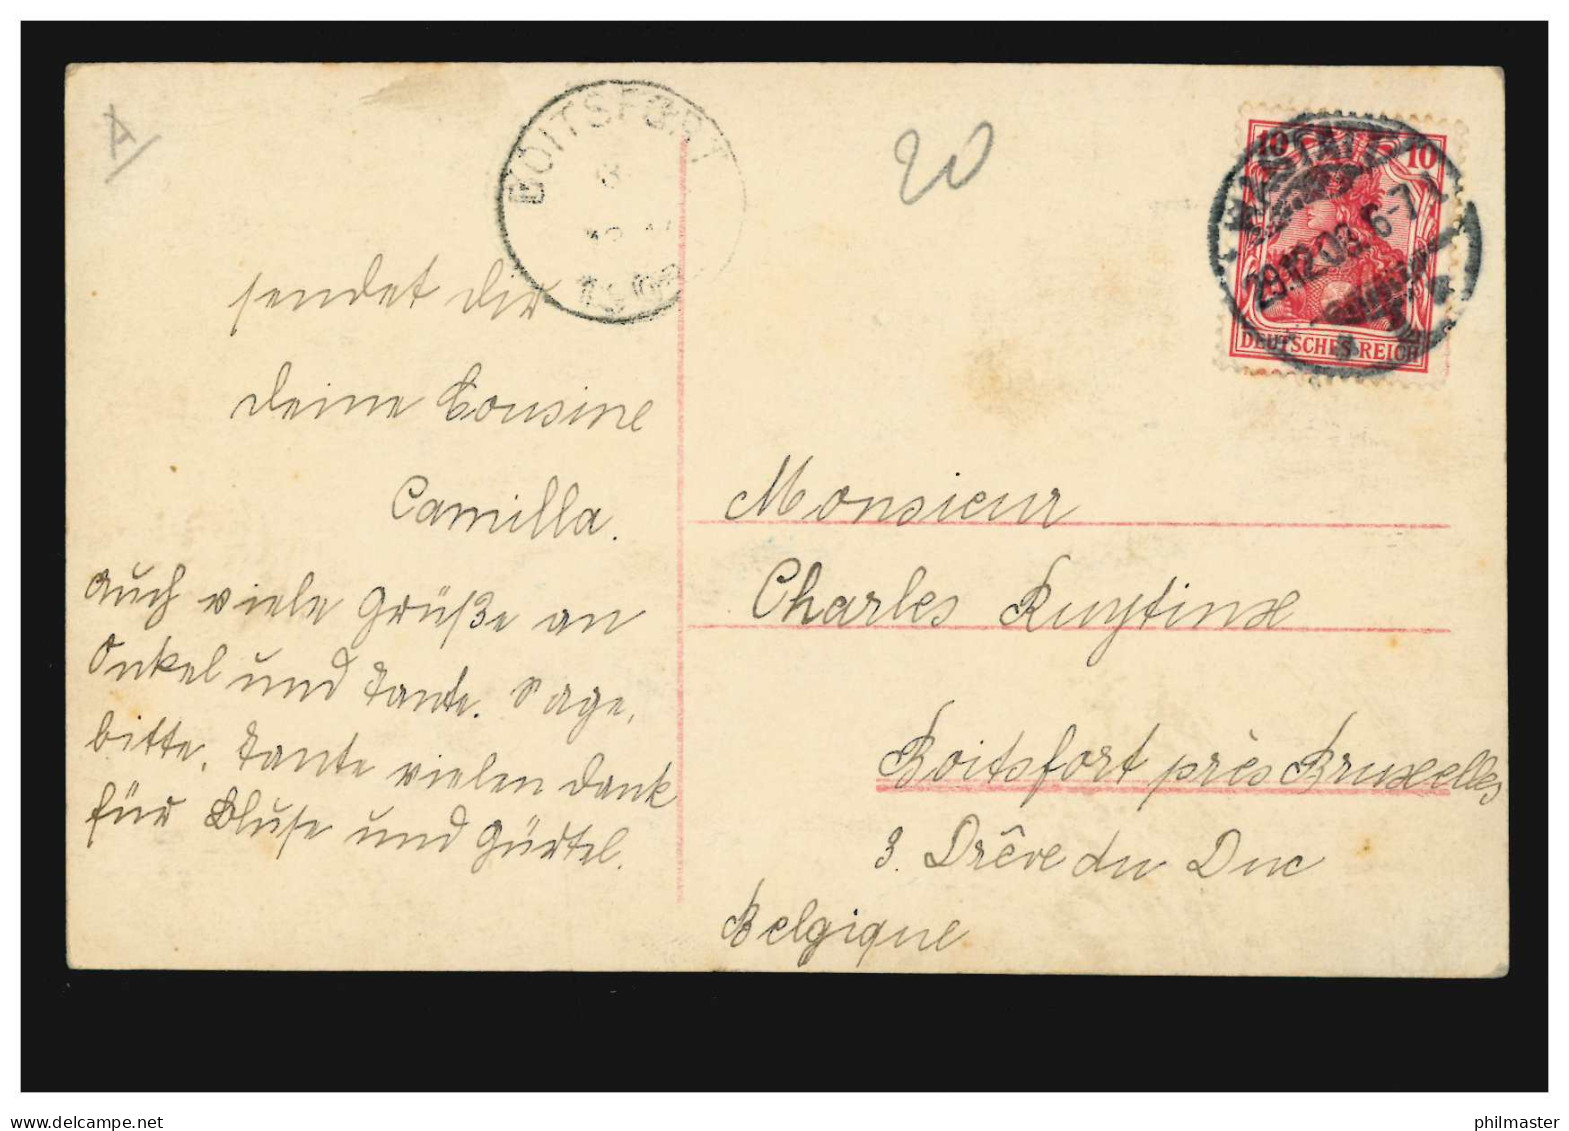 A
BOITSFORT
20
10 10
RASTATT
29.12.09. 6-7
DEUTSCHES REICH
sendet dir
deine Cousine
Camilla.
Auch viele Grüße an
Onkel und Tante. Sage,
bitte, Tante vielen Dank
für Bluse und Gürtel.
Monsieur
Charles Ruytinx
Boitsfort près Bruxelles
3. Drêve du Duc
Belgique
www.oldthing.net
philmaster